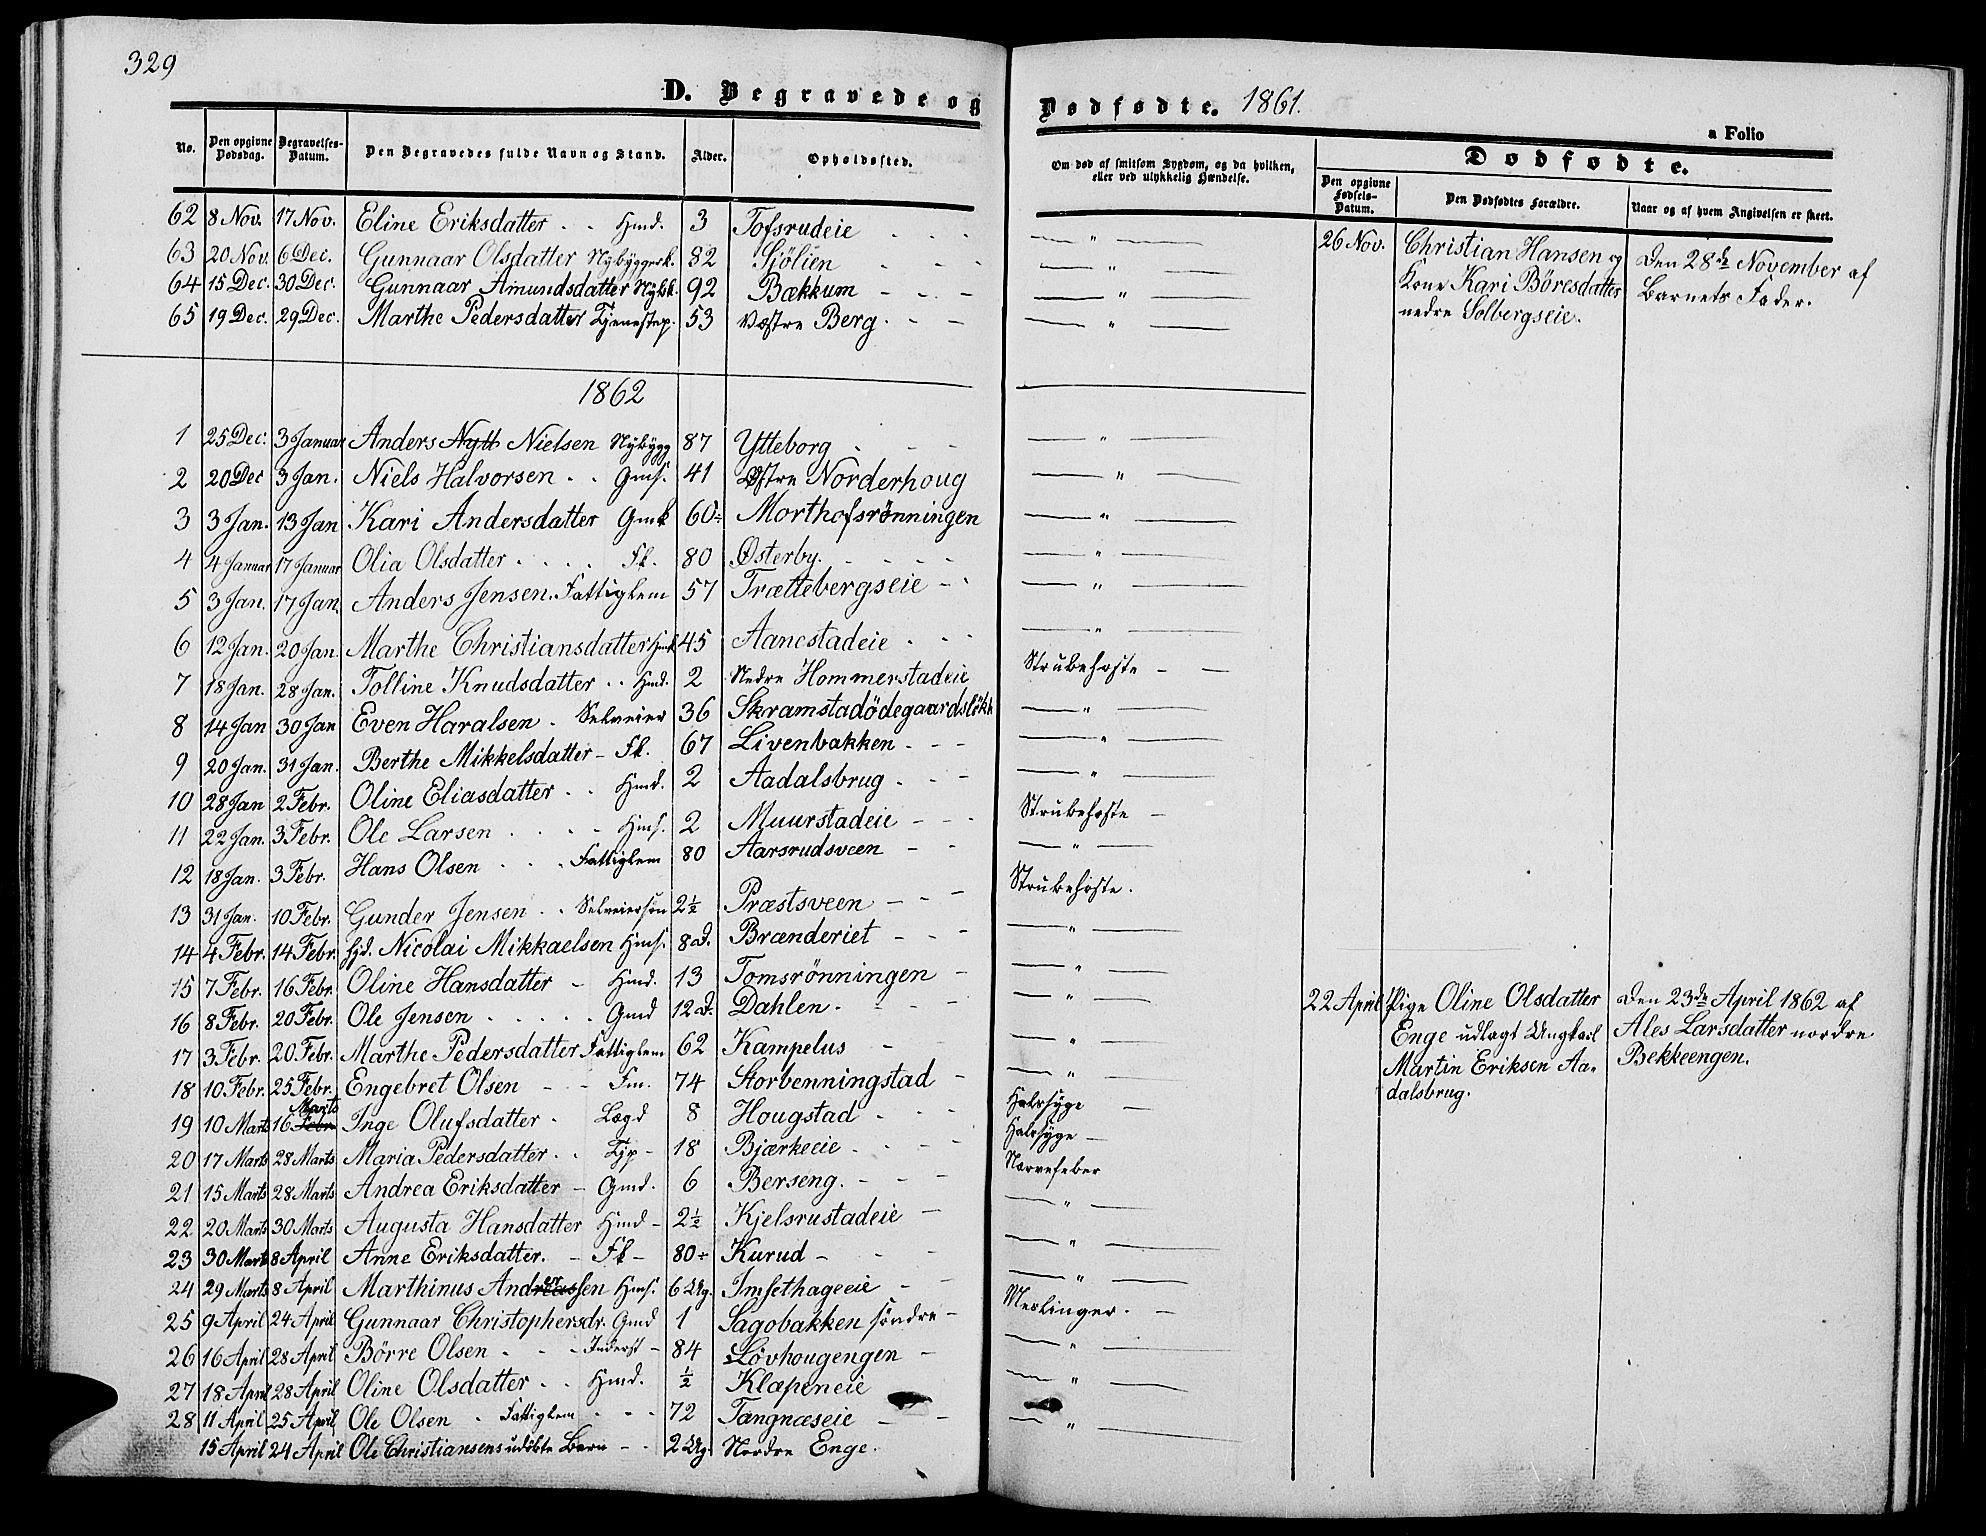 329
D. Begravede og Dødfødte. 1861.
a Folio
No. Den opgivne Dødsdag. Begravelses-Datum. Den Begravedes fulde Navn og Stand. Alder. Opholdssted. Om død af smitsom Sygdom, og da hvilken, eller ved ulykkelig Hændelse.
Dødfødte.
Den opgivne Fødsels-Datum. Den Dødfødtes Forældre. Naar og af hvem Angivelsen er skeet.
62 8 Nov. 17 Nov. Eline Eriksdatter . . Hmd. 3 Tofsrudeie - - - — " —
63 20 Nov. 6 Dec. Gunnaar Olsdatter Nybyggerk. 82 Sjölien - - - — " —
64 15 Dec. 30 Dec. Gunnaar Amundsdatter Nybk. 92 Bækkum - - - — " —
65 19 Dec. 29 Dec. Marthe Pedersdatter Tjenestep. 53 Vestre Berg - - - — " —
26 Nov. Christian Hansen og
Kone Kari Böresdatter
nedre Solbergseie.
Den 28de November af
Barnets Fader.
1862
1 25 Dec. 3 Januar Anders Nytt Nielsen Nybygg 87 Ytteborg - - - — " —
2 20 Dec 3 Jan. Niels Halvorsen . . Gms. 41 Østre Norderhoug — " —
3 3 Jan. 13 Jan Kari Andersdatter Gmk 60÷ Morthofsrönningen — " —
4 4 Januar 17 Januar Olia Olsdatter . . . . Fk. 80 Østerby. - - - — " —
5 3 Jan. 17 Jan. Anders Jensen. Fattiglem 57 Trættebergseie - - — " —
6 12 Jan. 20 Jan. Marthe Christiansdatter Hmk 45 Aanestadeie - - - — " —
7 18 Jan. 28 Jan. Tolline Knudsdatter . . Hmd. 2 Nedre Hommerstadeie Strubehoste - -
8 14 Jan 30 Jan Even Haralsen . Selveier 36 Skramstadödegaardslökk — " —
9 20 Jan. 31 Jan. Berthe Mikkelsdatter - Fk. 67 Livenbakken - - - — " —
10 28 Jan 2 Febr. Oline Eliasdatter . . Hmd. 2 Aadalsbrug - - - — " —
11 22 Jan. 3 Febr. Ole Larsen . . . . Hms. 2 Muurstadeie - - - Strubehoste -
12 18 Jan. 3 Febr. Hans Olsen . . . Fattiglem 80 Aarsrudsveen - - — " —
13 31 Jan. 10 Febr. Gunder Jensen . . Selveiersön 2½ Præstsveen - - - Strubehoste.
14 4 Febr. 14 Febr. hjd. Nicolai Mikkaelsen Hms. 8 d. Brænderiet - - - — " —
15 7 Febr. 16 Febr. Oline Hansdatter - Hmd. 13 Tomsrönningen - — " —
16 8 Febr. 20 Febr. Ole Jensen . . . . . Gmd 12 d. Dahlen. - - - — " —
17 3 Febr. 20 Febr. Marthe Pedersdatter Fattiglem 62 Kampelus - — " —
18 10 Febr. 25 Febr. Engebret Olsen - - Fm. 74 Storbenningstad - — " —
19 10 Marts 16 Febr. Marts Inge Olufsdatter . Lægd 8 Hougstad - - - Halssyge -
20 17 Marts 28 Marts Maria Pedersdatter . . Tjp - 18 Bjærkeeie - - - Halssyge -
21 15 Marts 28 Marts Andrea Eriksdatter - Gmd. 6 Berseng. - - - Nervefeber
22 20 Marts 30 Marts Augusta Hansdatter Hmd - 2½ Kjelsrustadeie - — " —
23 30 Marts 8 April Anne Eriksdatter. - Fk - 80÷ Kurud - - - — " —
24 29 Marts 8 April Marthinus Andreassen er Hms. 6 Ug. Imsethageeie - - — " —
25 9 April 24 April Gunnaar Christophersdr. Gmd 1 Sagobakken söndre - Meslinger. -
26 16 April 28 April Börre Olsen . - - Inderst - 84 Lövhougengen - — " —
27 18 April 28 April Oline Olsdatter . . Hmd. ½ Klæpeneie — " —
28 11 April 25 April Ole Olsen . Fattiglem - - - 72 Tangnæseie - - — " —
15 April 24 April Ole Christiansens udöbte Barn - - 2 Ug. Nordre Enge.
22 April Pige Oline Olsdatter
Enge udlagt Ungkarl
Martin Eriksen Aa-
dalsbrug.
Den 23de April 1862 af
Ales Larsdatter nordre
Bekkeengen.